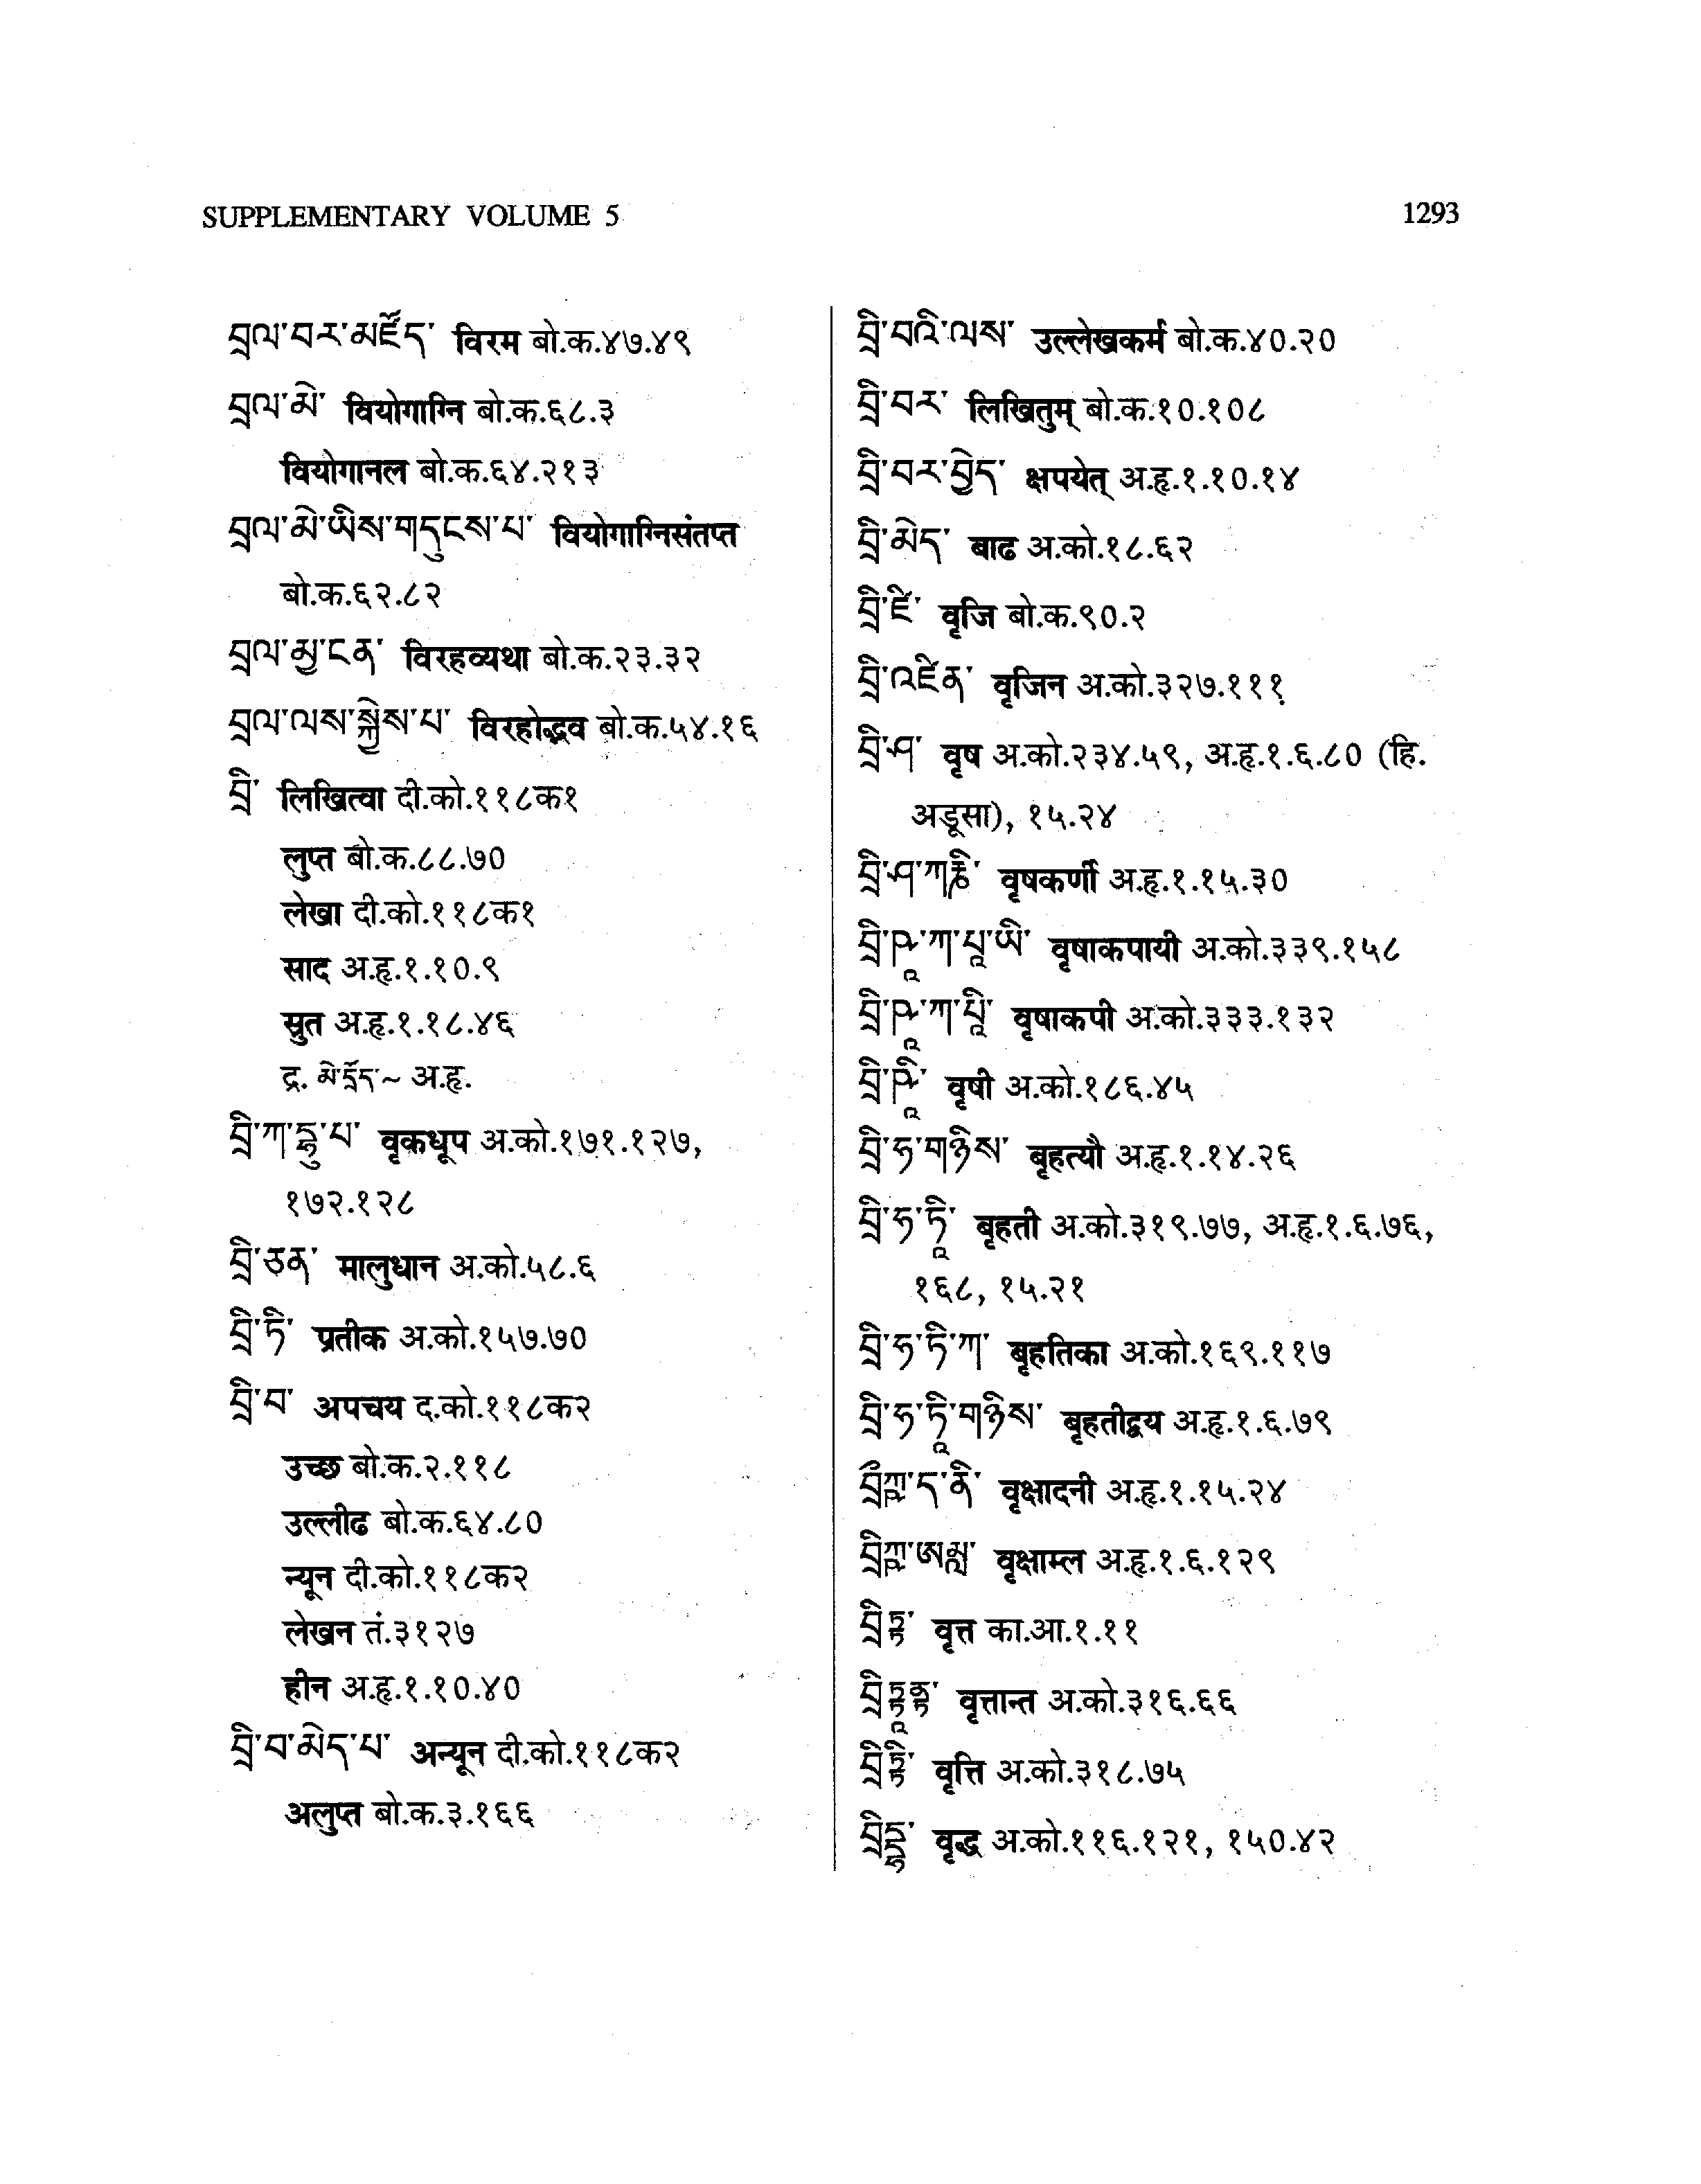 SUPPLEMENTARY VOLUME 5
1293
བྲལ་བར་མཛོད་ विरम बो.क.४७.४९
བྲལ་མེ་ वियोगाग्नि बो.क.६८.३
वियोगानल बो.क.६४.२१३
བྲལ་མེ་ཡིས་གདུངས་པ་ वियोगाग्निसंतप्त
बो.क.६२.८२
བྲལ་མྱ་ངན་ विरहव्यथा बो.क.२३.३२
བྲལ་ལས་སྐྱེས་པ་ विरहोद्भव बो.क.५४.१६
བྲི་ लिखित्वा दी.को.११८क१
लुप्त बो.क.८८.७०
लेखा दी.को.११८क१
साद अ.हृ.१.१०.९
स्रुत अ.हृ.१.१८.४६
द्र. མེ་དྲོད་~ अ.हृ.
བྲི་ཀ་དྷུ་པ་ वृकधूप अ.को.१७१.१२७,
१७२.१२८
བྲི་ཅན་ मालुधान अ.को.५८.६
བྲི་ཏི་ प्रतीक अ.को.१५७.७०
བྲི་བ་ अपचय द.को.११८क२
उच्छ बो.क.२.११८
उल्लीढ बो.क.६४.८०
न्यून दी.को.११८क२
लेखन तं.३१२७
हीन अ.हृ.१.१०.४०
བྲི་བ་མེད་པ་ अन्यून दी.को.११८क२
अलुप्त बो.क.३.१६६
བྲི་བའི་ལས་ उल्लेखकर्म बो.क.४०.२०
བྲི་བར་ लिखितुम् बो.क.१०.१०८
བྲི་བར་བྱེད་ क्षपयेत् अ.हृ.१.१०.१४
བྲི་མེད་ बाढ अ.को.१८.६२
བྲི་ཛི་ वृजि बो.क.९०.२
བྲི་འཛིན་ वृजिन अ.को.३२७.१११
བྲི་ཤ་ वृष अ.को.२३४.५९, अ.हृ.१.६.८० (हि.
अडूसा), १५.२४
བྲི་ཤ་ཀརྞི་ वृषकर्णी अ.हृ.१.१५.३०
བྲི་ཥཱ་ཀ་པཱ་ཡི་ वृषाकपायी अ.को.३३९.१५८
བྲི་ཥཱ་ཀ་པཱི་ वृषाकपी अ.को.३३३.१३२
བྲི་ཥཱི་ वृषी अ.को.१८६.४५
བྲི་ཧ་གཉིས་ बृहत्यौ अ.हृ.१.१४.२६
བྲི་ཧ་ཏཱི་ बृहती अ.को.३१९.७७, अ.हृ.१.६.७६,
१६८, १५.२१
བྲི་ཧ་ཏི་ཀ་ बृहतिका अ.को.१६९.११७
བྲི་ཧ་ཏཱི་གཉིས་ बृहतीद्वय अ.हृ.१.६.७९
वृक्षादनी अ.हृ.१.१५.२४
བྲིཀྵ་ཨམླ་ वृक्षाम्ल अ.हृ.१.६.१२९
བྲིཏྟ་ वृत्त का.आ.१.११
བྲིཏྟཱནྟ་ वृत्तान्त अ.को.३१६.६६
བྲིཏྟི་ वृत्ति अ.को.३१८.७५
བྲིདྡྷ་ वृद्ध अ.को.११६.१२१, १५०.४२